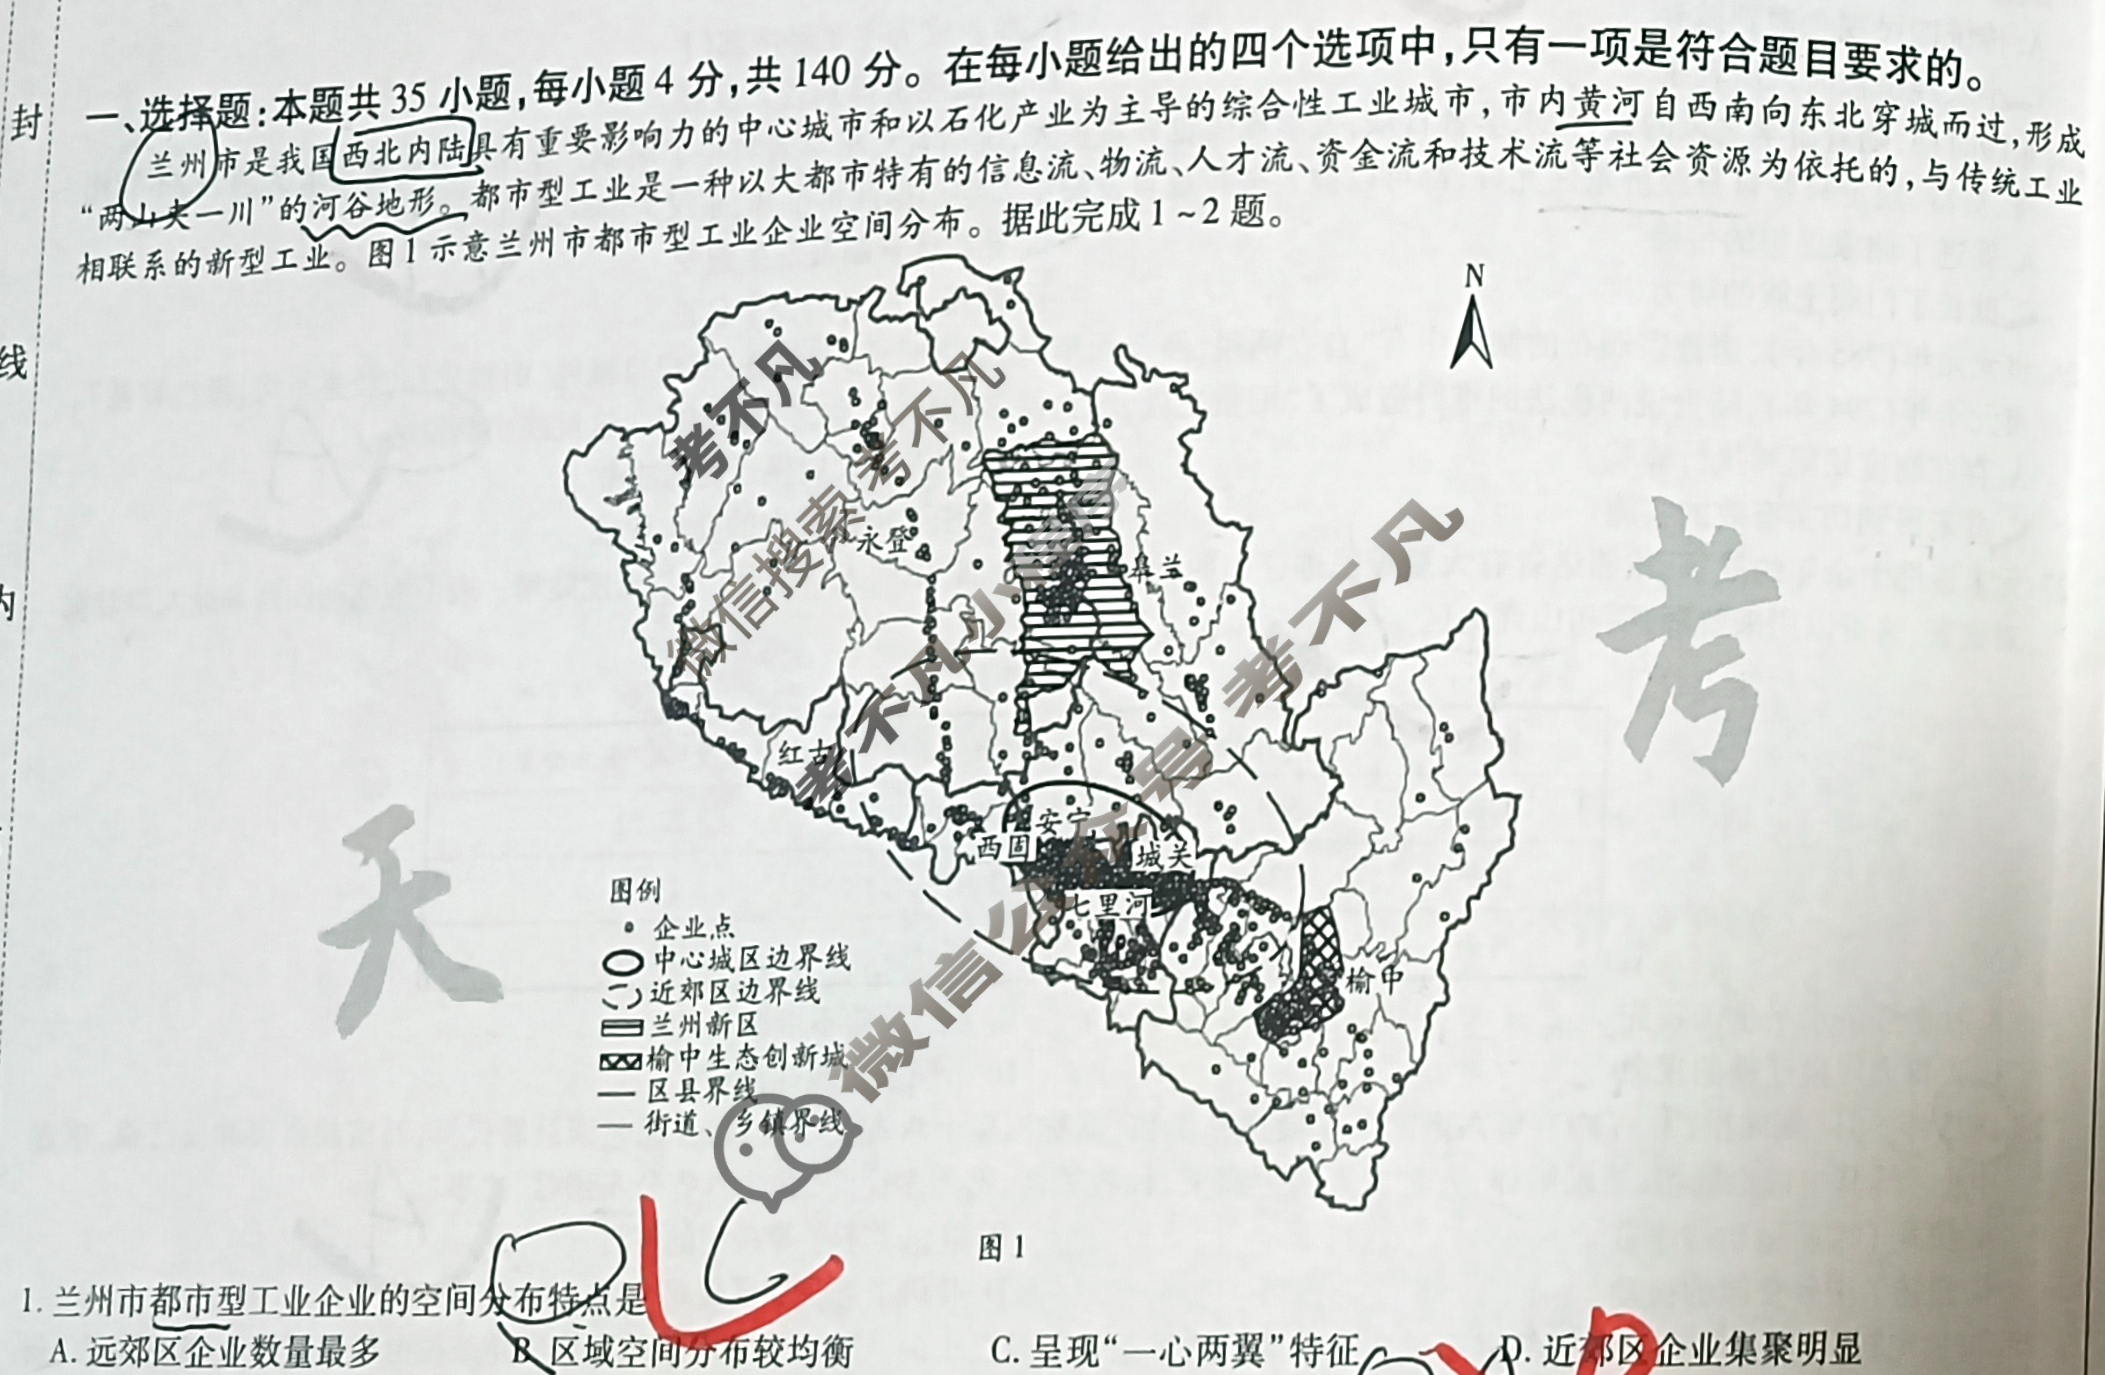 一、选择题:本题共35小题,每小题4分,共140分。在每小题给出的四个选项中,只有一项是符合题目要求的。
兰州市是我国西北内陆具有重要影响力的中心城市和以石化产业为主导的综合性工业城市,市内黄河自西南向东北穿城而过,形成
“两山夹一川”的河谷地形。都市型工业是一种以大都市特有的信息流、物流、人才流、资金流和技术流等社会资源为依托的,与传统工业
相联系的新型工业。图1示意兰州市都市型工业企业空间分布。据此完成1~2题。
封
线
内
N
考不凡
微信搜索 考不凡
永登
皋兰
考不凡小
考不凡
考
红古
安宁
西固
城关
七里河
榆中
天
微信公众号
图例
企业点
中心城区边界线
近郊区边界线
兰州新区
榆中生态创新城
区县界线
街道、乡镇界线
图1
C
1.兰州市都市型工业企业的空间分布特点是
A.远郊区企业数量最多
B.区域空间分布较均衡
C.呈现“一心两翼”特征
D.近郊区企业集聚明显